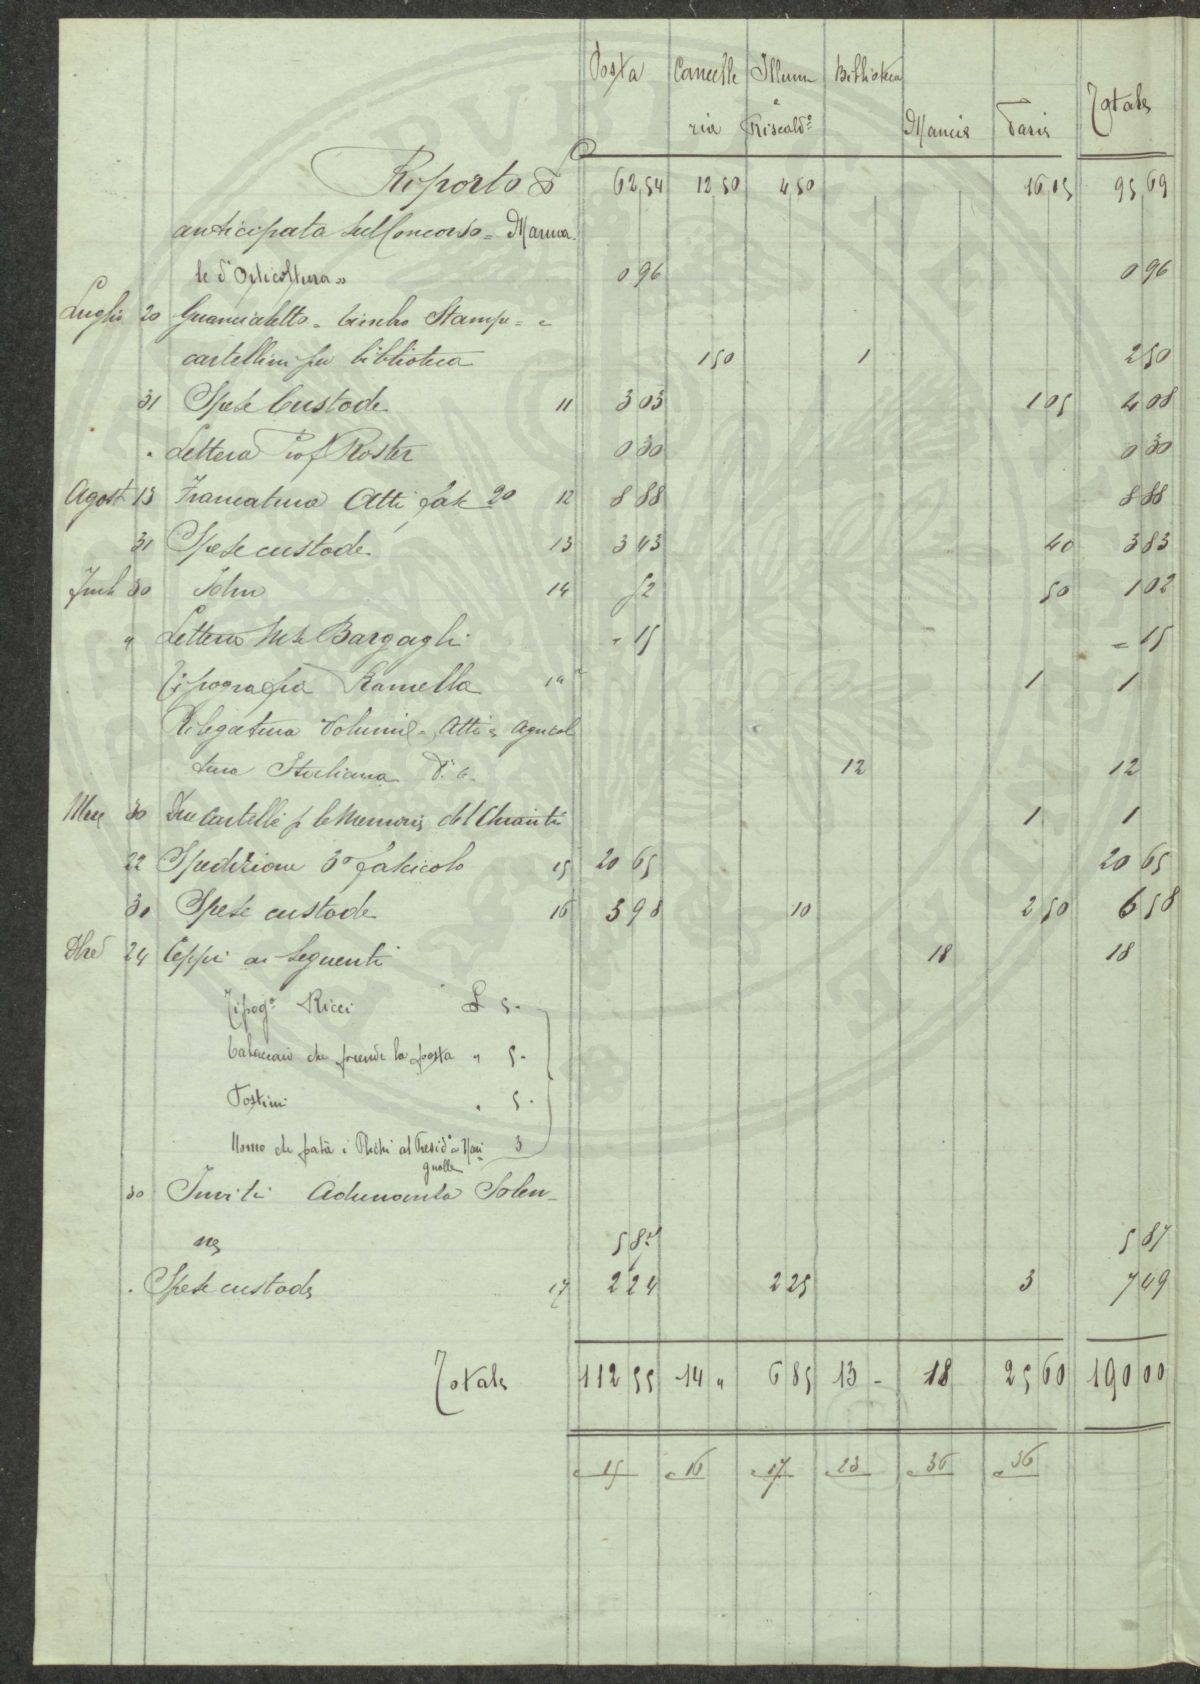 Posta Cancelle Illum Biblioteca
e
ria Riscald° Mancie Varie Totale
Riporto £ 62 54 12 50 4 50 16 15 95 69
anticipata sul Concorso = Manua-
le d'Orticoltura » 0 96 0 96
Luglio 20 Guancialetto = timbro Stampe = e
cartellini per biblioteca 1 50 1 2 50
31 Spese Custode 11 3 03 1 05 4 08
" Lettera Prof Roster 0 30 0 30
Agost 13 Francatura Atti fasc 2° 12 8 88 8 88
31 Spese custode 13 3 43 40 3 83
30 Idem 14 52 50 1 02
" Lettera Bargagli = 15 = 15
Tipografia Ramella 1 1
Rilegatura Volumi = Atti e Agricol
tura Italiana N. 6 12 12
Nbre 30 Due Cartelli p le Memorie del Chianti 1 1
22 Spedizione 3° fascicolo 15 20 65 20 65
30 Spese custode 16 3 98 10 2 50 6 58
Dbre 24 Ceppi ai seguenti 18 18
Tipog° Ricci £ 5 -
che prende la posta " 5 -
Postini " 5 -
Uomo che i al Presid° a Mari 3
gnolle
30 Inviti Adunanza Solen-
ne 5 87 5 87
" Spese custode 17 2 24 2 25 3 7 49
Totale 112 55 14 " 6 85 13 - 18 25 60 190 00
c 15 c 16 c 17 c 23 c 36 c 36